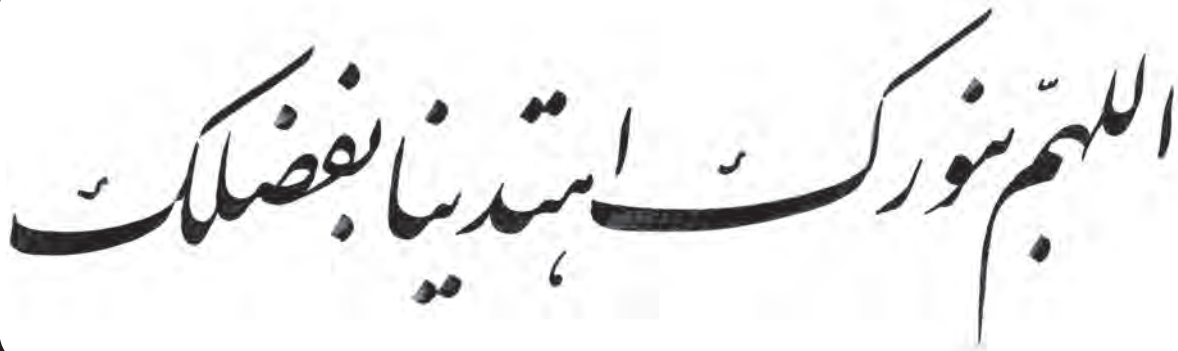 اللهمّ بنورك اهتدينا بفضلك